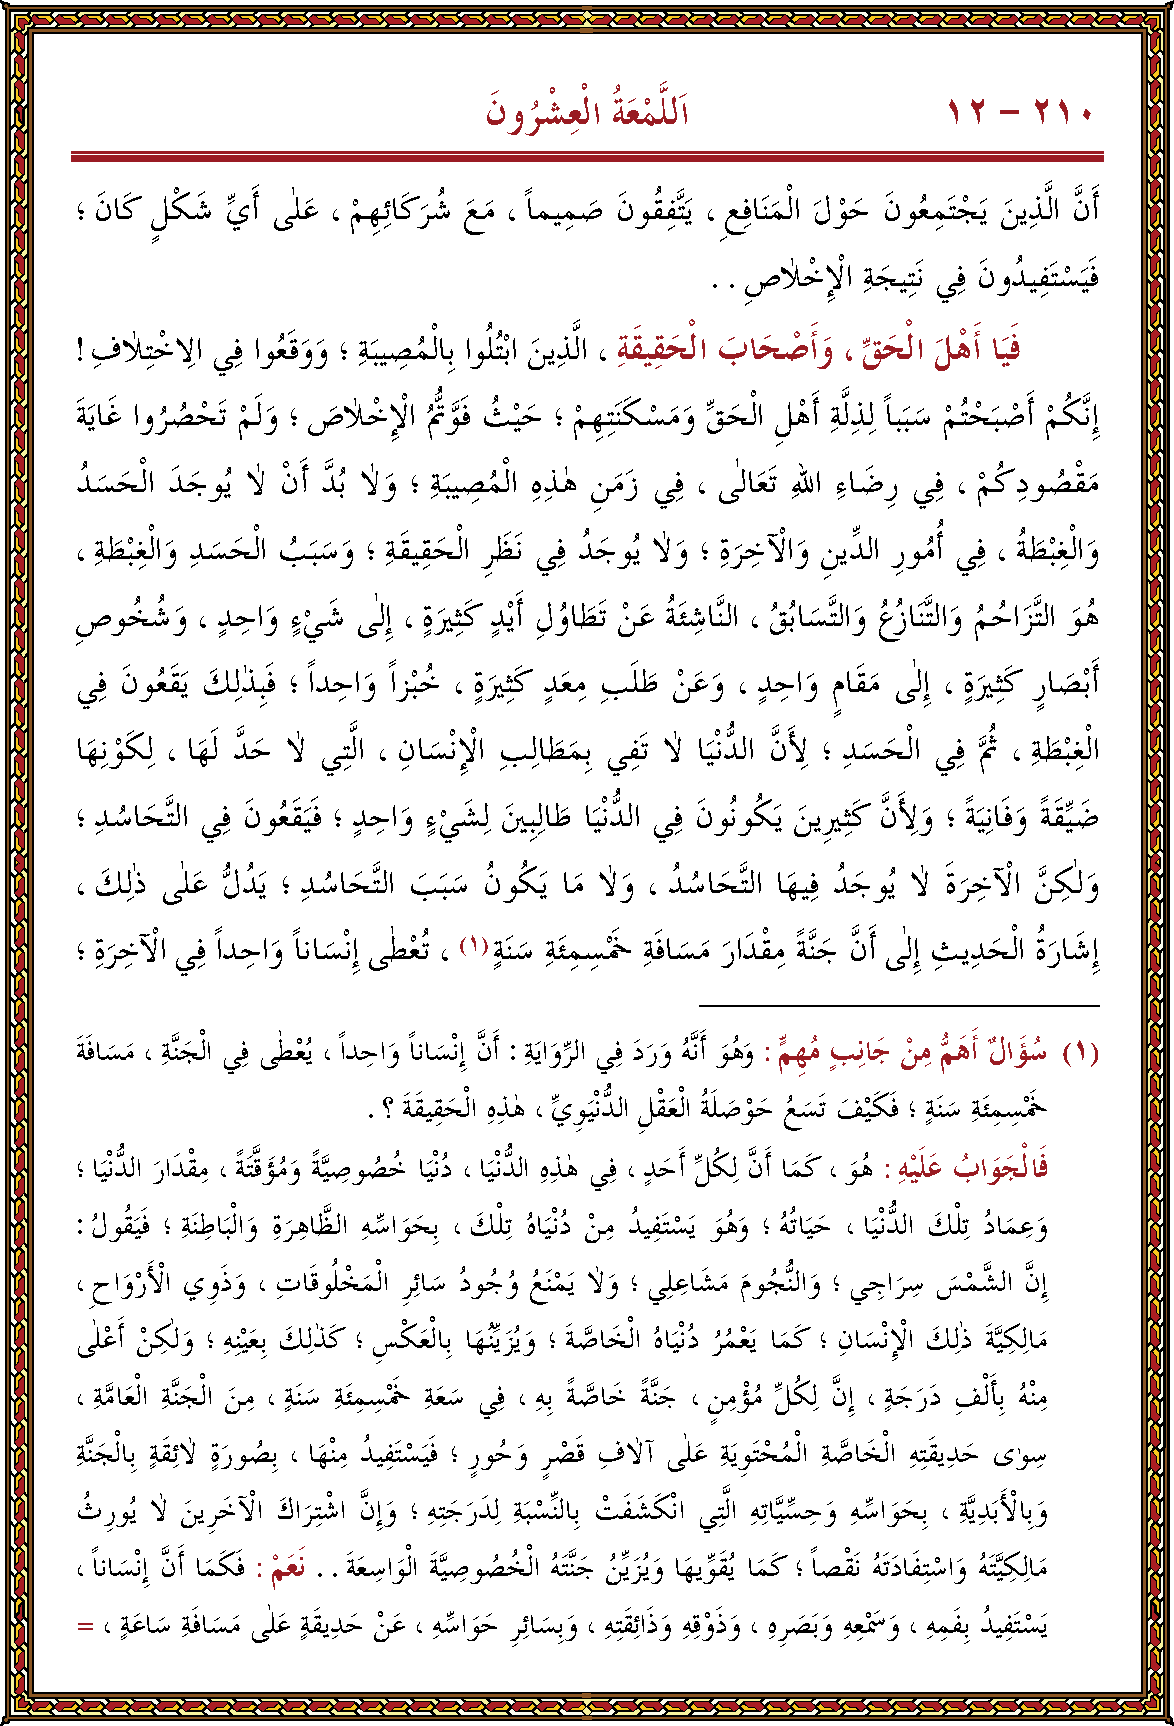 ٢١٠ – ١٢ اَللَّمْعَةُ الْعِشْرُونَ
أَنَّ الَّذِينَ يَجْتَمِعُونَ حَوْلَ الْمَنَافِعِ ، يَتَّفِقُونَ صَمِيماً ، مَعَ شُرَكَائِهِمْ ، عَلٰى أَيِّ شَكْلٍ كَانَ ؛
فَيَسْتَفِيدُونَ فِي نَتِيجَةِ الْإِخْلاٰصِ . .
فَيَا أَهْلَ الْحَقِّ ، وَأَصْحَابَ الْحَقِيقَةِ ، الَّذِينَ ابْتُلُوا بِالْمُصِيبَةِ ؛ وَوَقَعُوا فِي الِاخْتِلاٰفِ !
إِنَّكُمْ أَصْبَحْتُمْ سَبَباً لِذِلَّةِ أَهْلِ الْحَقِّ وَمَسْكَنَتِهِمْ ؛ حَيْثُ فَوَّتُّمُ الْإِخْلاٰصَ ؛ وَلَمْ تَحْصُرُوا غَايَةَ
مَقْصُودِكُمْ ، فِي رِضَاءِ اللهِ تَعَالٰى ، فِي زَمَنِ هٰذِهِ الْمُصِيبَةِ ؛ وَلاٰ بُدَّ أَنْ لاٰ يُوجَدَ الْحَسَدُ
وَالْغِبْطَةُ ، فِي أُمُورِ الدِّينِ وَالْآخِرَةِ ؛ وَلاٰ يُوجَدُ فِي نَظَرِ الْحَقِيقَةِ ؛ وَسَبَبُ الْحَسَدِ وَالْغِبْطَةِ ،
هُوَ التَّزَاحُمُ وَالتَّنَازُعُ وَالتَّسَابُقُ ، النَّاشِئَةُ عَنْ تَطَاوُلِ أَيْدٍ كَثِيرَةٍ ، إِلٰى شَيْءٍ وَاحِدٍ ، وَشُخُوصِ
أَبْصَارٍ كَثِيرَةٍ ، إِلٰى مَقَامٍ وَاحِدٍ ، وَعَنْ طَلَبِ مِعَدٍ كَثِيرَةٍ ، خُبْزاً وَاحِداً ؛ فَبِذٰلِكَ يَقَعُونَ فِي
الْغِبْطَةِ ، ثُمَّ فِي الْحَسَدِ ؛ لِأَنَّ الدُّنْيَا لاٰ تَفِي بِمَطَالِبِ الْإِنْسَانِ ، الَّتِي لاٰ حَدَّ لَهَا ، لِكَوْنِهَا
ضَيِّقَةً وَفَانِيَةً ؛ وَلِأَنَّ كَثِيرِينَ يَكُونُونَ فِي الدُّنْيَا طَالِبِينَ لِشَيْءٍ وَاحِدٍ ؛ فَيَقَعُونَ فِي التَّحَاسُدِ ؛
وَلٰكِنَّ الْآخِرَةَ لاٰ يُوجَدُ فِيهَا التَّحَاسُدُ ، وَلاٰ مَا يَكُونُ سَبَبَ التَّحَاسُدِ ؛ يَدُلُّ عَلٰى ذٰلِكَ ،
إِشَارَةُ الْحَدِيثِ إِلٰى أَنَّ جَنَّةً مِقْدَارَ مَسَافَةِ خَمْسِمِئَةِ سَنَةٍ(١) ، تُعْطٰى إِنْسَاناً وَاحِداً فِي الْآخِرَةِ ؛
(١) سُؤَالٌ أَهَمُّ مِنْ جَانِبٍ مُهِمٍّ : وَهُوَ أَنَّهُ وَرَدَ فِي الرِّوَايَةِ : أَنَّ إِنْسَاناً وَاحِداً ، يُعْطٰى فِي الْجَنَّةِ ، مَسَافَةَ
خَمْسِمِئَةِ سَنَةٍ ؛ فَكَيْفَ تَسَعُ حَوْصَلَةُ الْعَقْلِ الدُّنْيَوِيِّ ، هٰذِهِ الْحَقِيقَةَ ؟ .
فَالْجَوَابُ عَلَيْهِ : هُوَ ، كَمَا أَنَّ لِكُلِّ أَحَدٍ ، فِي هٰذِهِ الدُّنْيَا ، دُنْيَا خُصُوصِيَّةً وَمُؤَقَّتَةً ، مِقْدَارَ الدُّنْيَا ؛
وَعِمَادُ تِلْكَ الدُّنْيَا ، حَيَاتُهُ ؛ وَهُوَ يَسْتَفِيدُ مِنْ دُنْيَاهُ تِلْكَ ، بِحَوَاسِّهِ الظَّاهِرَةِ وَالْبَاطِنَةِ ؛ فَيَقُولُ :
إِنَّ الشَّمْسَ سِرَاجِي ؛ وَالنُّجُومَ مَشَاعِلِي ؛ وَلاٰ يَمْنَعُ وُجُودُ سَائِرِ الْمَخْلُوقَاتِ ، وَذَوِي الْأَرْوَاحِ ،
مَالِكِيَّةَ ذٰلِكَ الْإِنْسَانِ ؛ كَمَا يَعْمُرُ دُنْيَاهُ الْخَاصَّةَ ؛ وَيُزَيِّنُهَا بِالْعَكْسِ ؛ كَذٰلِكَ بِعَيْنِهِ ؛ وَلٰكِنْ أَعْلٰى
مِنْهُ بِأَلْفِ دَرَجَةٍ ، إِنَّ لِكُلِّ مُؤْمِنٍ ، جَنَّةً خَاصَّةً بِهِ ، فِي سَعَةِ خَمْسِمِئَةِ سَنَةٍ ، مِنَ الْجَنَّةِ الْعَامَّةِ ،
سِوٰى حَدِيقَتِهِ الْخَاصَّةِ الْمُحْتَوِيَةِ عَلٰى آلاٰفِ قَصْرٍ وَحُورٍ ؛ فَيَسْتَفِيدُ مِنْهَا ، بِصُورَةٍ لاٰئِقَةٍ بِالْجَنَّةِ
وَبِالْأَبَدِيَّةِ ، بِحَوَاسِّهِ وَحِسِّيَّاتِهِ الَّتِي انْكَشَفَتْ بِالنِّسْبَةِ لِدَرَجَتِهِ ؛ وَإِنَّ اشْتِرَاكَ الْآخَرِينَ لاٰ يُورِثُ
مَالِكِيَّتَهُ وَاسْتِفَادَتَهُ نَقْصاً ؛ كَمَا يُقَوِّيهَا وَيُزَيِّنُ جَنَّتَهُ الْخُصُوصِيَّةَ الْوَاسِعَةَ . . نَعَمْ : فَكَمَا أَنَّ إِنْسَاناً ،
يَسْتَفِيدُ بِفَمِهِ ، وَسَمْعِهِ وَبَصَرِهِ ، وَذَوْقِهِ وَذَائِقَتِهِ ، وَبِسَائِرِ حَوَاسِّهِ ، عَنْ حَدِيقَةٍ عَلٰى مَسَافَةِ سَاعَةٍ ، =